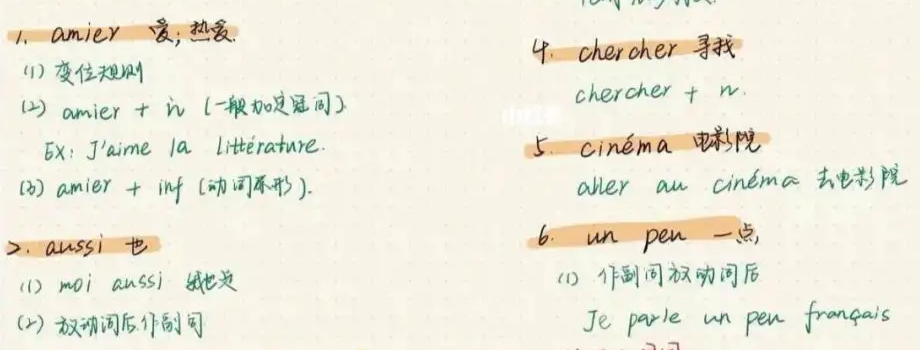 1. amier 爱;热爱.
(1) 变位规则
(2) amier + n (一般加定冠词).
EX: J'aime la littérature.
(3) amier + inf (动词原形).
2. aussi 也
(1) moi aussi 我也是
(2) 放动词后作副词
4. chercher 寻找
chercher + n.
5. cinéma 电影院
aller au cinéma 去电影院
6. un peu 一点,
(1) 作副词放动词后
Je parle un peu français